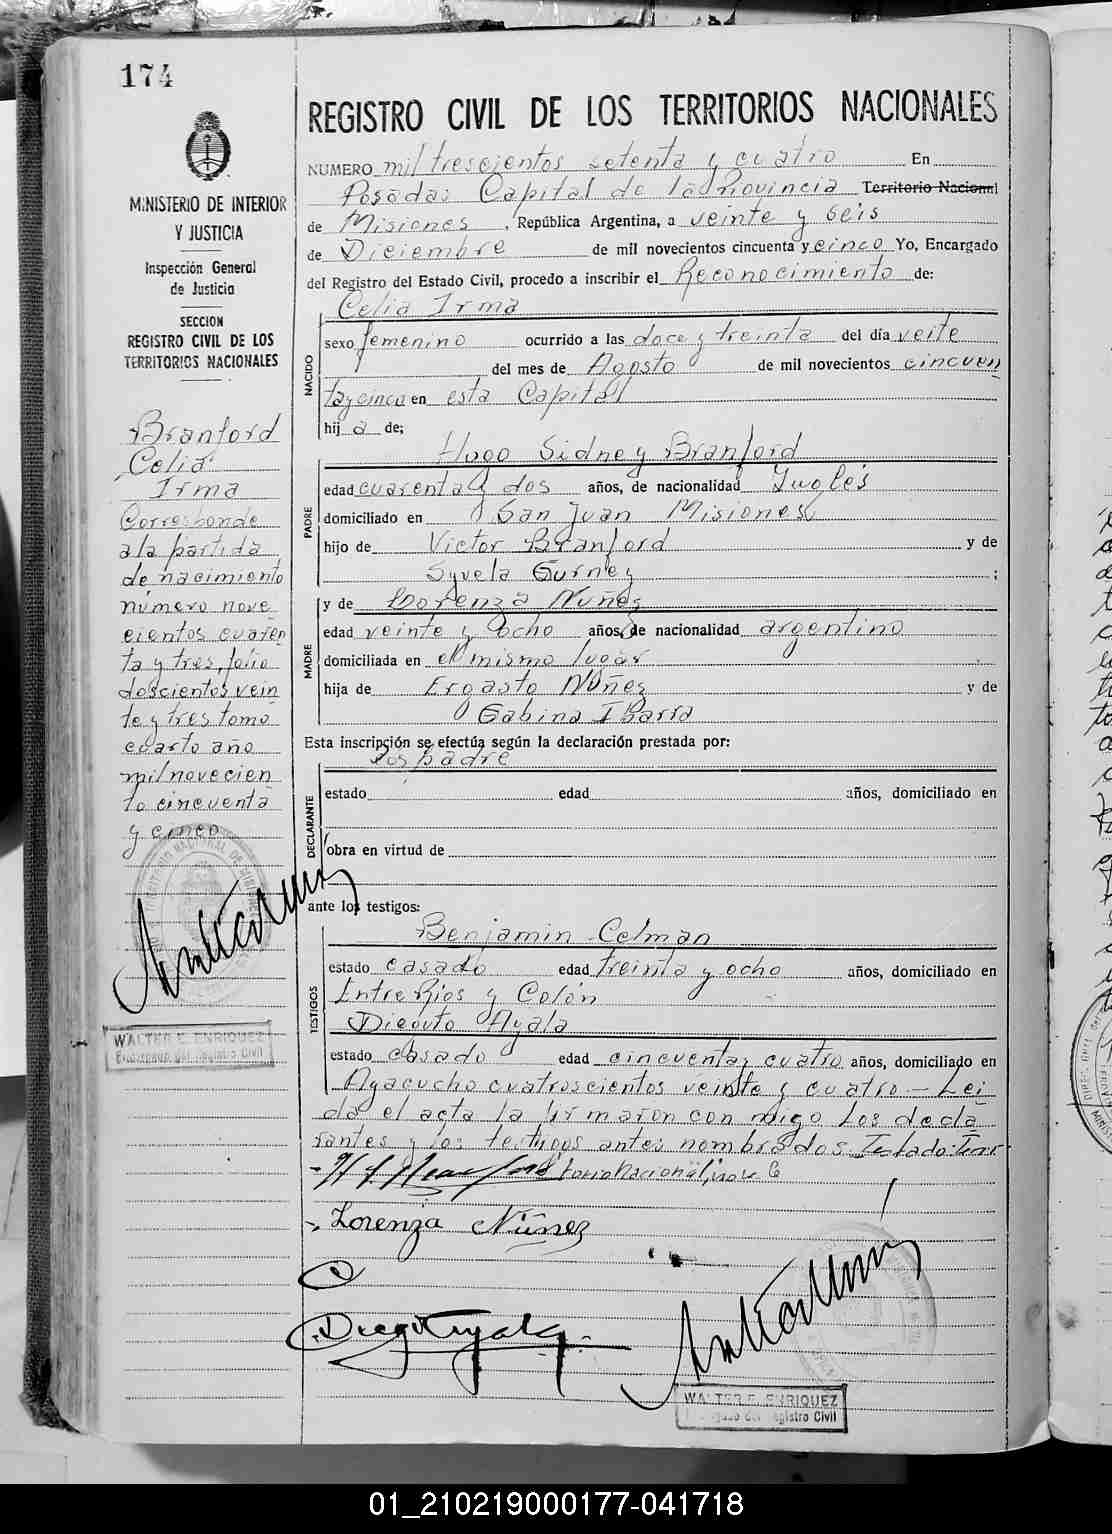 174
MINISTERIO DE INTERIOR
Y JUSTICIA
Inspección General
de Justicia
SECCION
REGISTRO CIVIL DE LOS
TERRITORIOS NACIONALES
Branford
Celia
Irma
Corresponde
a la partida
de nacimiento
número nove
cientos cuaren
ta y tres, folio
doscientos vein
te y tres tomo
cuarto año
mil novecien
to cincuenta
y cinco
WALTER E. ENRIQUEZ
Encargado del Registro Civil
REGISTRO CIVIL DE LOS TERRITORIOS NACIONALES
NUMERO mil trescientos setenta y cuatro En
Posadas Capital de la Provincia Territorio Nacional
de Misiones, República Argentina, a veinte y seis
de Diciembre de mil novecientos cincuenta y cinco Yo, Encargado
del Registro del Estado Civil, procedo a inscribir el Reconocimiento de:
Celia Irma
NACIDO
sexo femenino ocurrido a las doce y treinta del día veite
del mes de Agosto de mil novecientos cincuen
ta y cinco en esta Capital
hij a de;
PADRE
Hugo Sidney Branford
edad cuarenta y dos años, de nacionalidad Inglés
domiciliado en San Juan Misiones
hijo de Victor Branford y de
Syvela Gurney;
MADRE
y de Lorenza Nuñez
edad veinte y ocho años, de nacionalidad argentino
domiciliada en el mismo lugar
hija de Ergasto Nuñez y de
Gabina Ibarra
Esta inscripción se efectúa según la declaración prestada por:
los padre
DECLARANTE
estado edad años, domiciliado en
obra en virtud de
ante los testigos:
TESTIGOS
Benjamin Celman
estado casado edad treinta y ocho años, domiciliado en
Entre Rios y Colón
Dieguto Ayala
estado casado edad cincuenta y cuatro años, domiciliado en
Ayacucho cuatroscientos veinte y cuatro — Lei
da el acta la firmaron con migo los decla
rantes y los testigos antes nombrados. Testado: Terri
torio Nacional, no vale
Lorenza Núñez
WALTER E. ENRIQUEZ
Encargado del Registro Civil
01_210219000177-041718